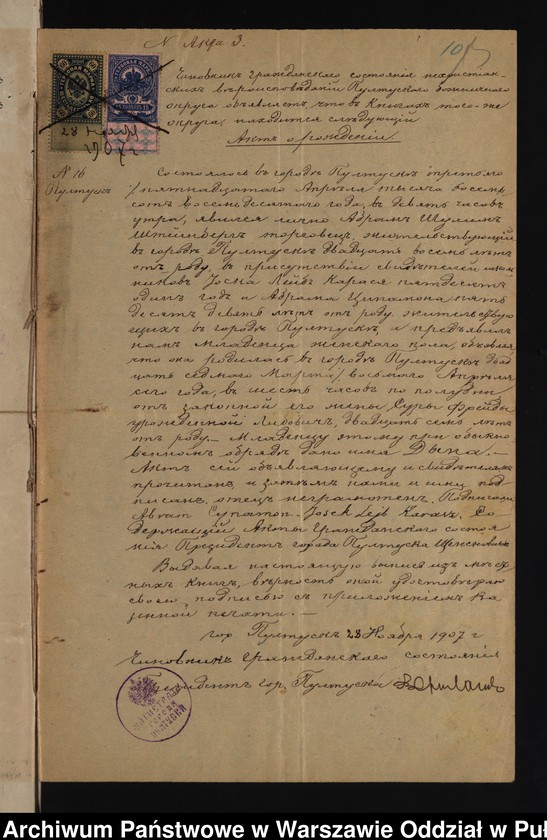 N Акта 3.
10
Чиновникъ Гражданскаго состоянія нехристіан-
скихъ вѣроисповѣданій Пултускаго
округа объявляетъ, что въ Книгахъ того-же
округа, находится слѣдующій
Актъ о рожденіи.
28 Ноябр
1907 г
N 16
Пултускъ
Состоялось въ городѣ Пултускѣ третьяго
/пятнадцатаго Апрѣля тысяча восемь
сотъ восемьдесятаго года, въ девять часовъ
утра, явился лично Абрамъ Шулимъ
Штейнбергъ торговецъ, жительствующій
въ городѣ Пултускѣ двадцати восьми лѣтъ
отъ роду, въ присутствіи свидѣтелей
Йоска Лейбъ Карася пятдесятъ
одинъ годъ и Абрама Цинамона пять
десятъ девять лѣтъ отъ роду жительствую
щихъ въ городѣ Пултускѣ, и предъявилъ
намъ младенца женскаго пола, объявляя
что она родилась въ городѣ Пултускѣ два
дцать седьмого Марта/восьмого Апрѣля
сего года, въ шесть часовъ по полудни
отъ законной его жены Суры Фрейды
урожденной двадцать семь лѣтъ
отъ роду. Младенцу этому при обыкно
венномъ обрядѣ дано имя Двойра.
Актъ сей объявляющему и свидѣтелямъ
прочитанъ, и затѣмъ нами и ими под
писанъ, отецъ неграмотенъ. Подписали
Abram Cynamon - Josek Lejb Karaś, Со-
держащій Акты Гражданскаго состоя
нія Президентъ города Пултуска
Выдавая настоящую выпись изъ
ныхъ Книгъ, вѣрность оной удостовѣряю
своею подписью съ приложеніемъ ка
зенной печати.
гор Пултускъ 28 Ноября 1907 г
Чиновникъ Гражданскаго состоянія
Президентъ гор. Пултуска
Archiwum Państwowe w Warszawie Oddział w Puł